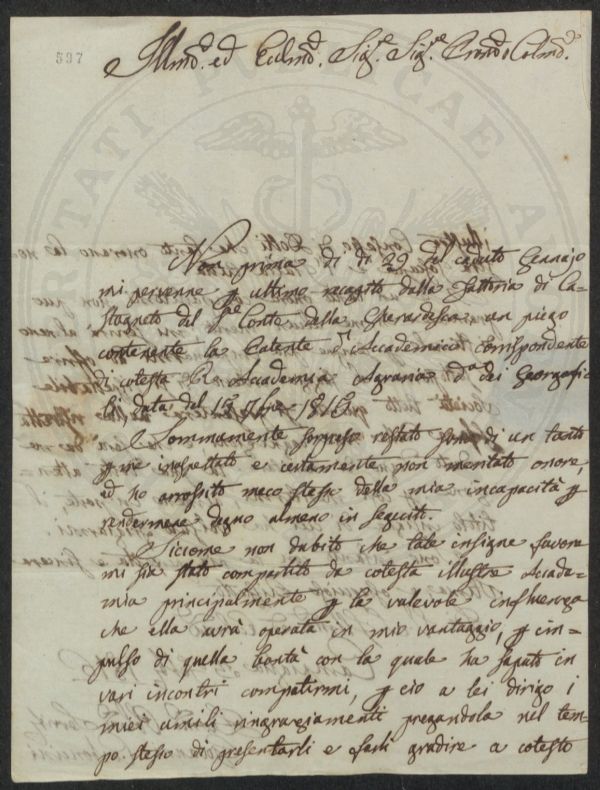 597
Illmo. ed Eccllmo. Sigr. Sigr. Prone Colmo.
Non prima di di 29 del caduto Gennajo
mi pervenne p ultimo recapito dalla Fattoria di Ca-
stagneto del Sre Conte della Gherardesca un piego
contenente la Patente d'Accademico Corrispondente
di cotesta Rle Accademia Agraria da dei Georgofi-
li, data del 15 7bre
Sommamente sorpreso restato sono di un tanto
p me inaspettato e certamente non meritato onore,
ed ho arrossito meco stesso della mia incapacità p
rendermene degno almeno in seguito.
Siccome non dubito che tale insigne favore
mi sia stato compartito da cotesta illustre Accade-
mia principalmente p la valevole influenza
che ella avrà operata in mio vantaggio, p im-
pulso di quella bontà con la quale ha saputo in
vari incontri compatirmi, p ciò a lei dirigo i
miei umili ringraziamenti pregandola nel tem-
po stesso di presentarli e farli gradire a cotesto